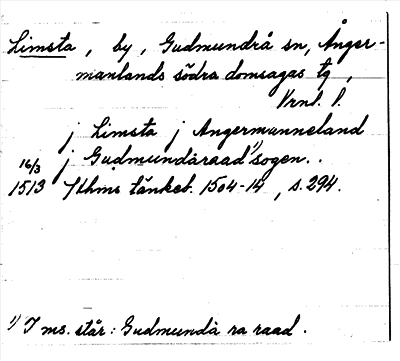 Limsta, by, Gudmundrå sn, Ånger-
manlands södra domsagas tg,
Vrnl. l.
j Limsta j Angermanneland
j Gudmundåraad¹⁾sogen..
16/3
1513 Sthms tänkeb. 1504-14, s. 294.
¹⁾ I ms. står: Gudmundå ra raad.